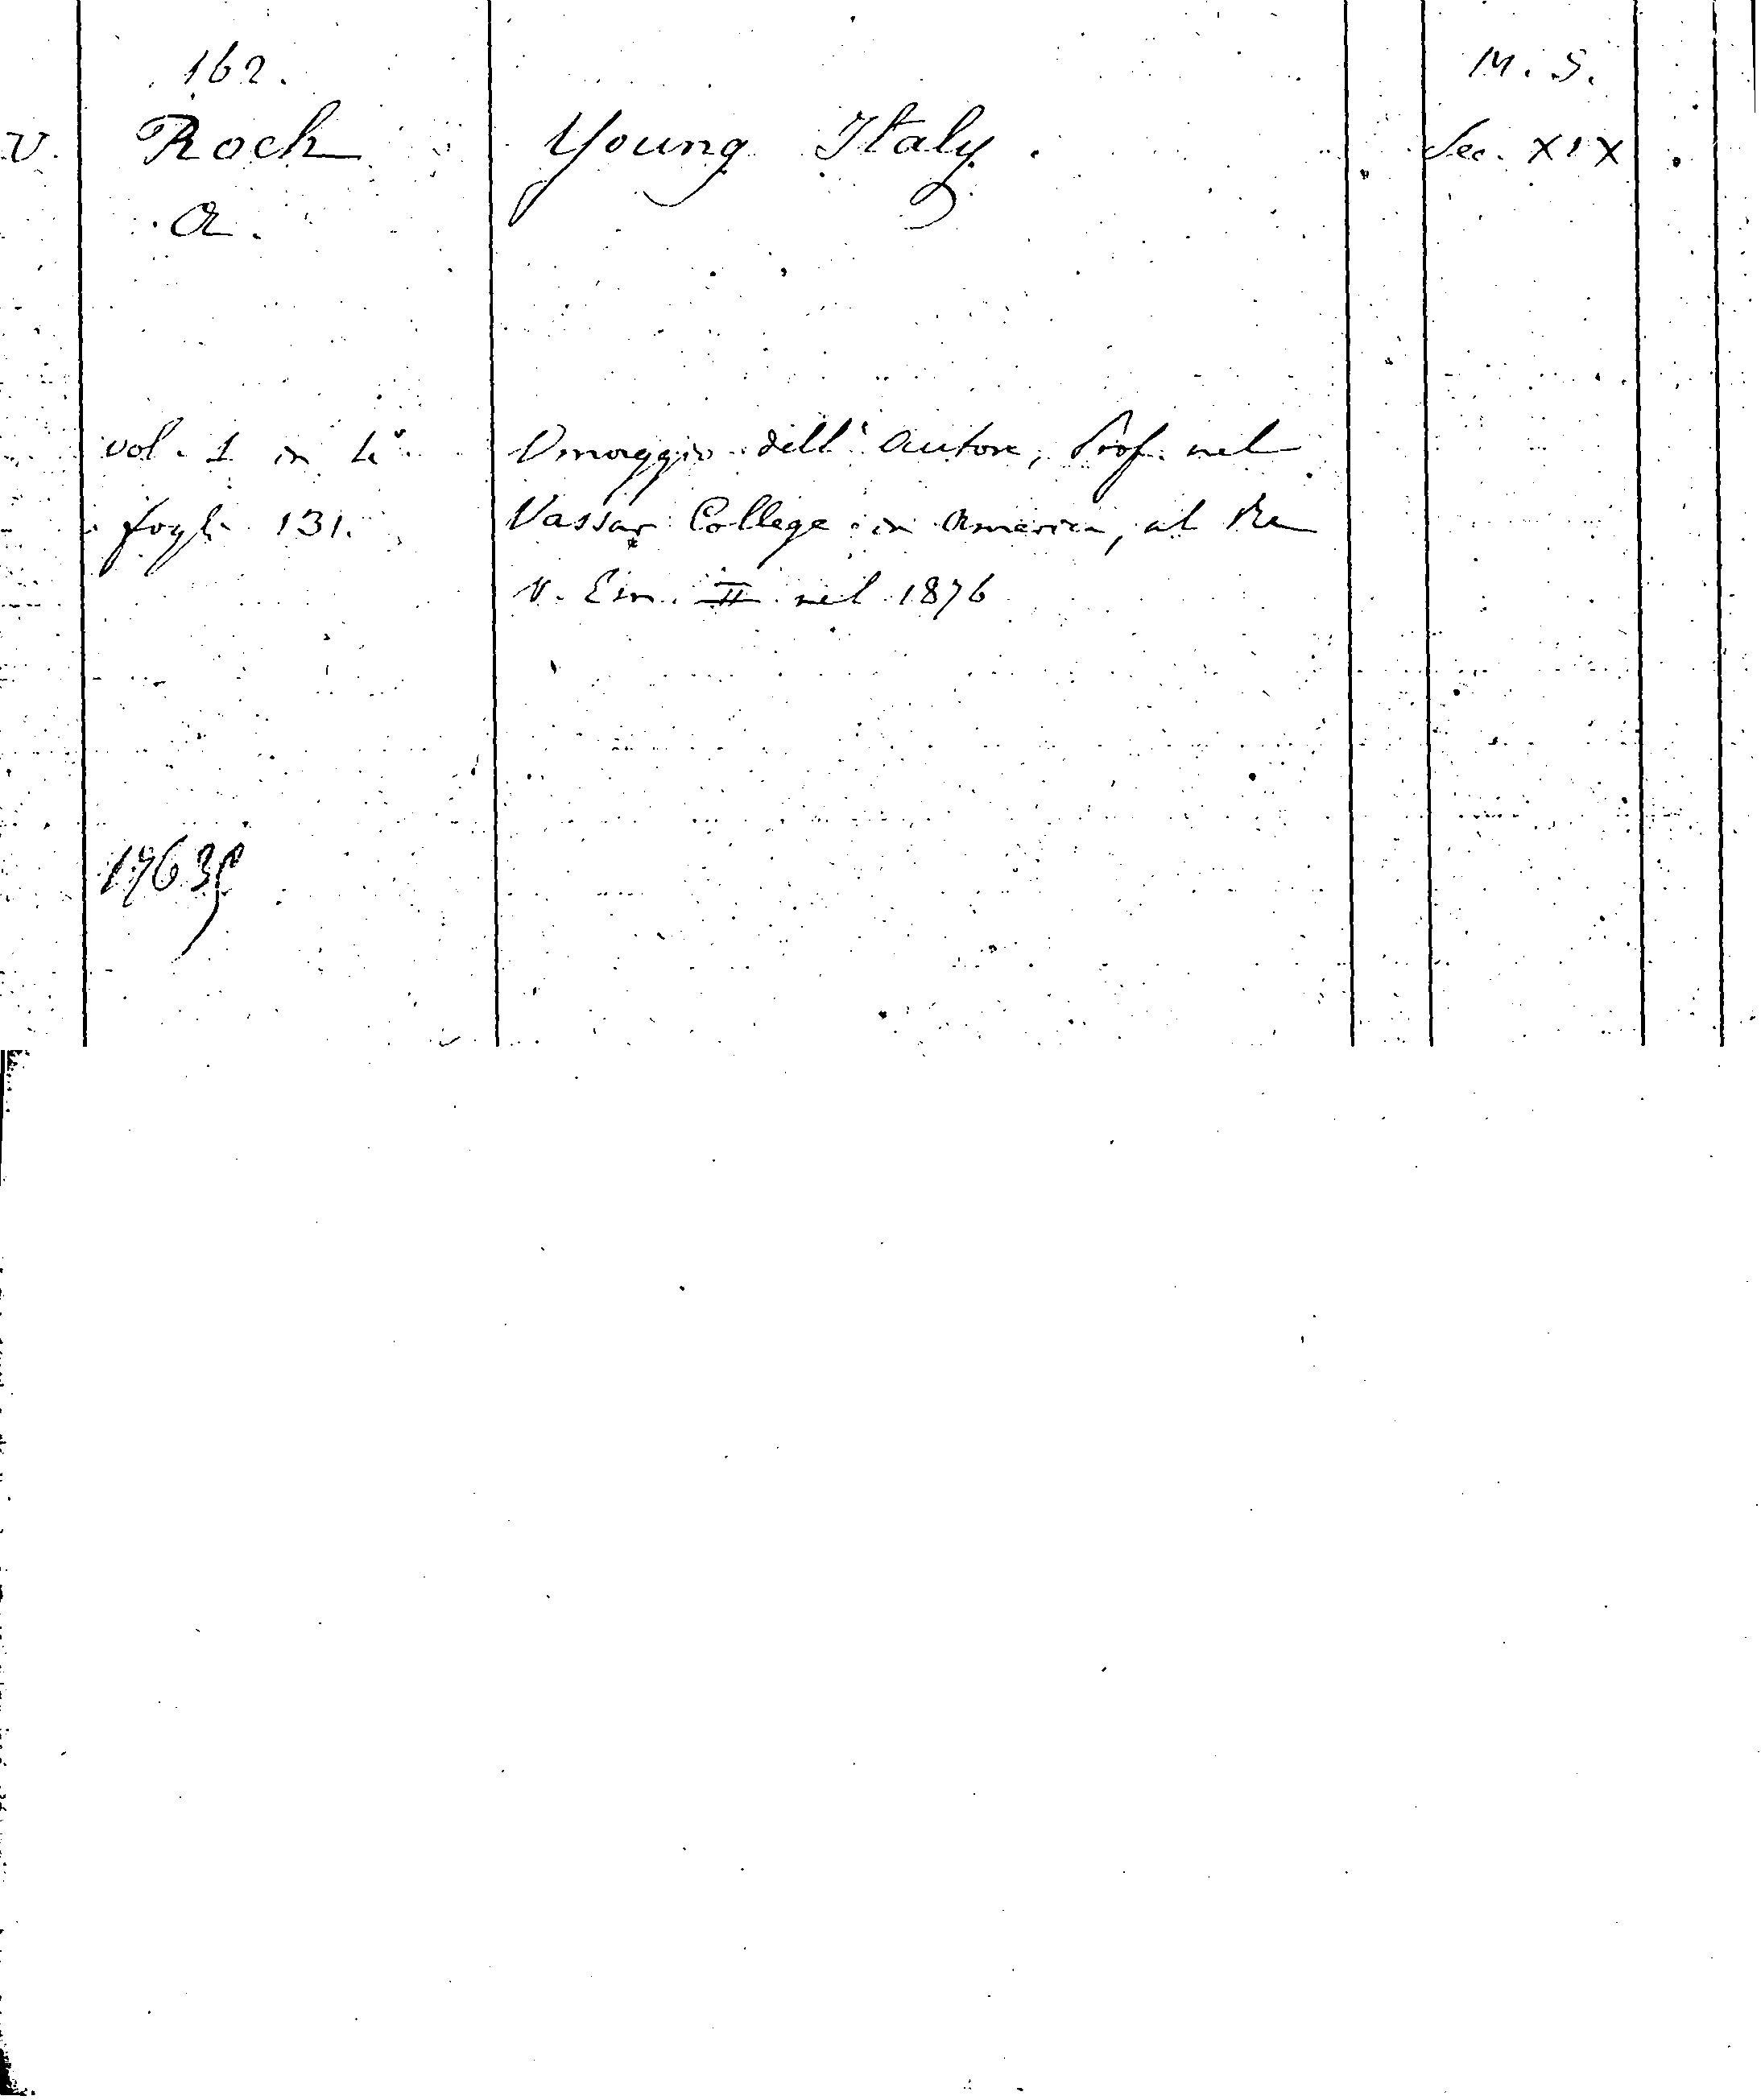 162.
M. S.
V. Roch Young Italy. Sec. XIX
A.
vol. 1 in 4°. Omaggio dell' autore, Prof. nel
fogli 131. Vassar College in America, al Re
V. Em. II nel 1876